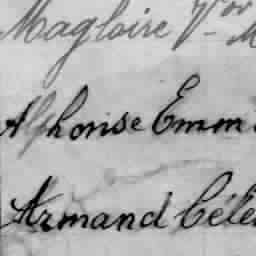 Magloire
Alphonse Emm
Armand Céle